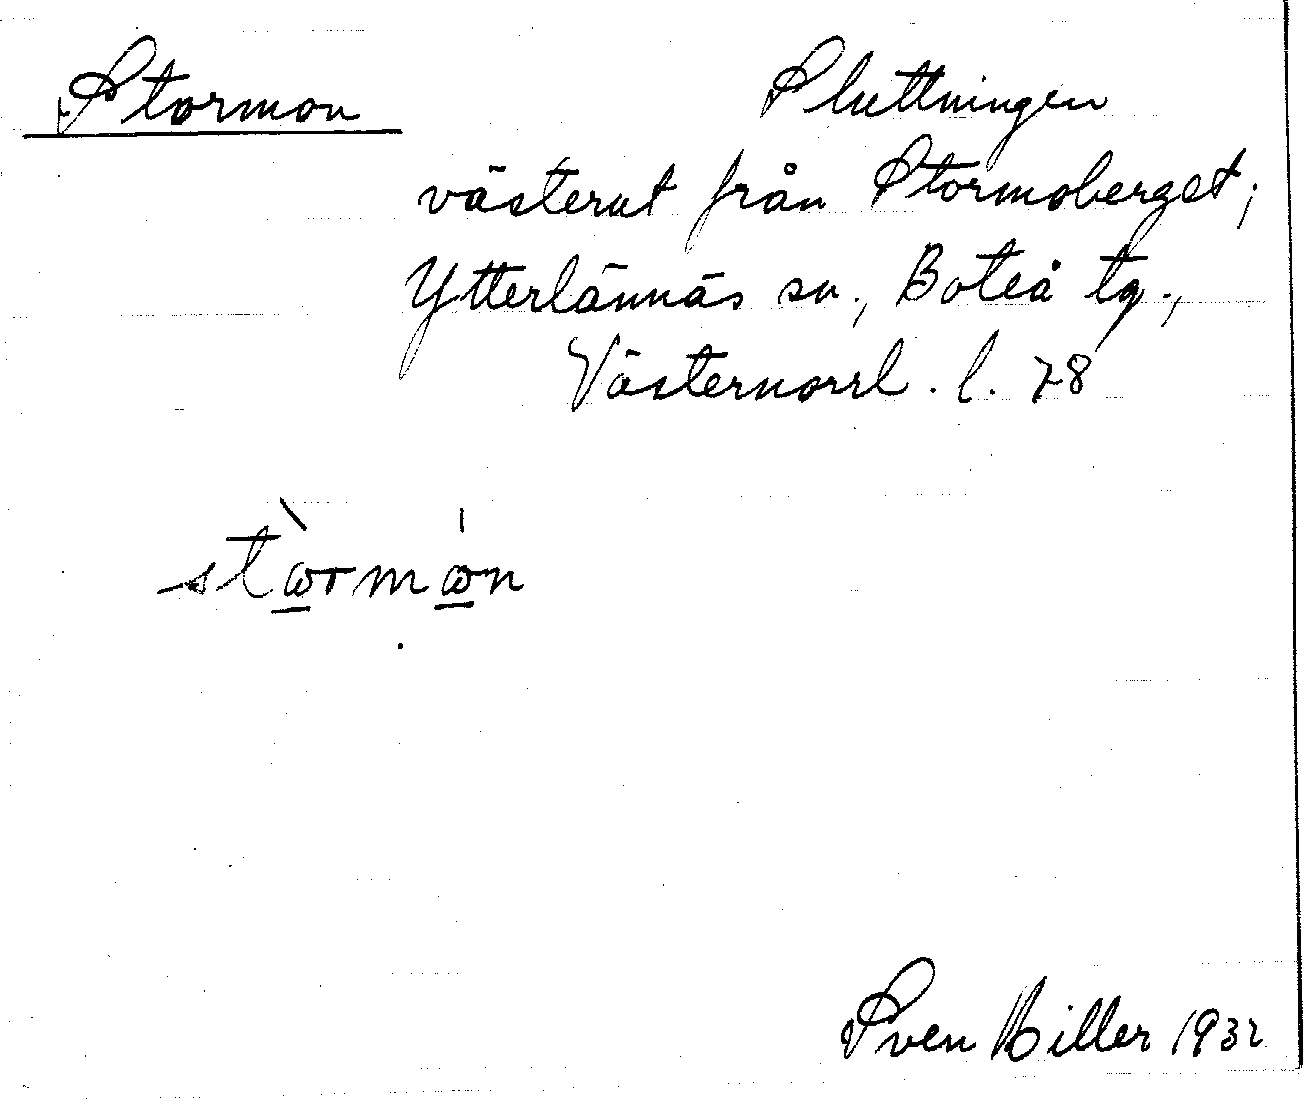 Stormon
Sluttningen
västerut från Stormoberget;
Ytterlännäs sn., Boteå tg.,
Västernorrl. l. 78
stὼ̲rmώ̲n
Sven Hiller 1932